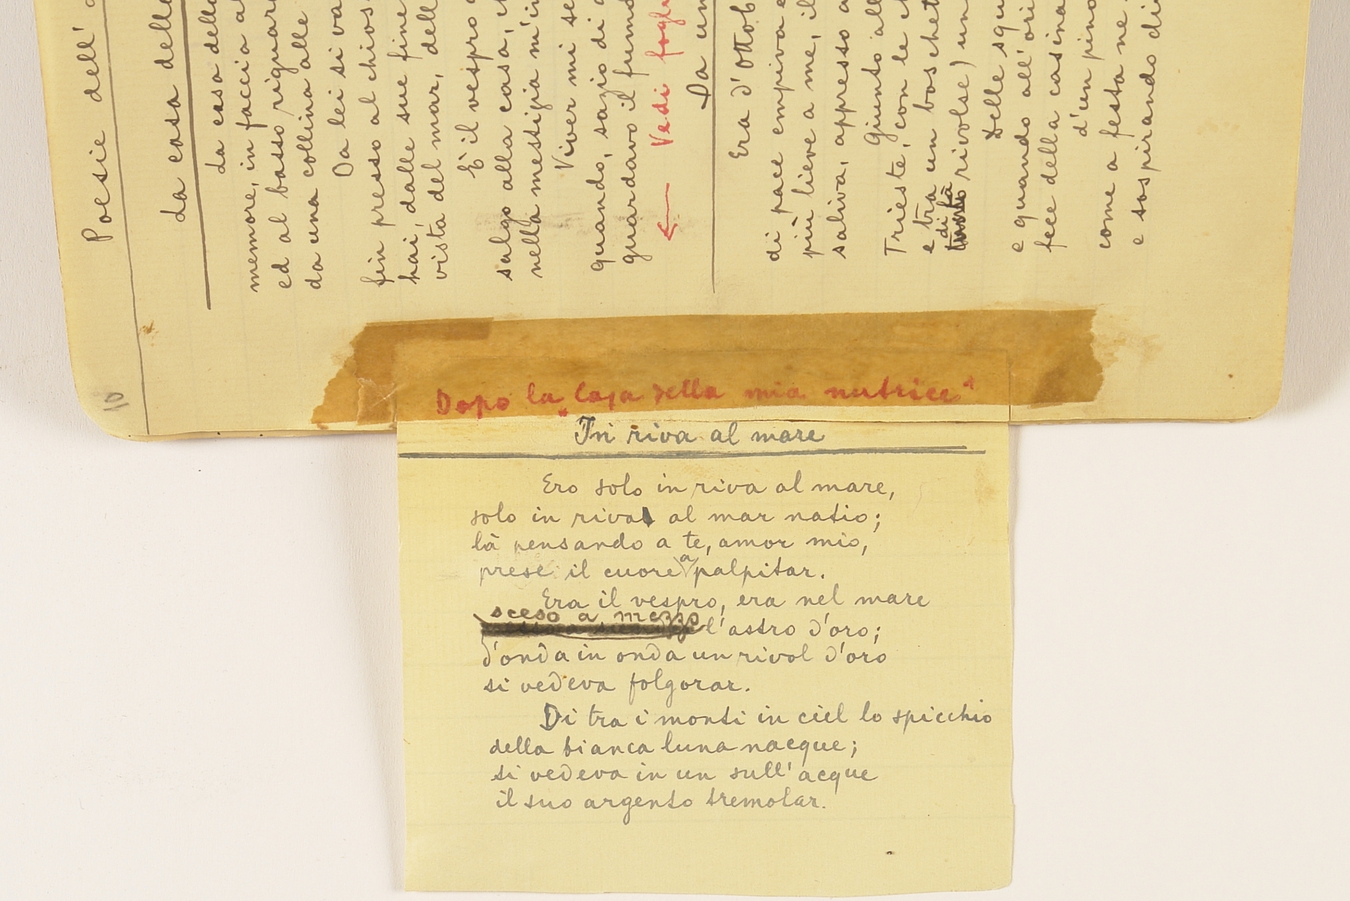 Poesie dell'
La casa dell
La casa dell
memore, in faccia a
ed al basso riguar
da una collina alle
Da lei si va
fin presso al chios
hai, dalle sue fine
vista del mar, dell
È il vespro
salgo alla casa,
nella mestizia m'i
Viver mi se
quando, sazio di
guardavo il fumo
← Vedi fogli
Da un
Era d'ottob
di pace empiva e
più lieve a me, il
saliva, appresso a
Giunto all
Trieste, con le
e tra un boschet
di là
rivolse) un
Delle squ
e quando all'ori
fece della casina
d'un pino
come a festa ne
e sospirando di
10
Dopo la "Casa della mia nutrice"
In riva al mare
Ero solo in riva al mare,
solo in riva al mar natio;
là pensando a te, amor mio,
prese il cuore a palpitar.
Era il vespro, era nel mare
sceso a mezzo l'astro d'oro;
d'onda in onda un rivol d'oro
si vedeva folgorar.
Di tra i monti in ciel lo spicchio
della bianca luna nacque;
si vedeva in un sull'acque
il suo argento tremolar.